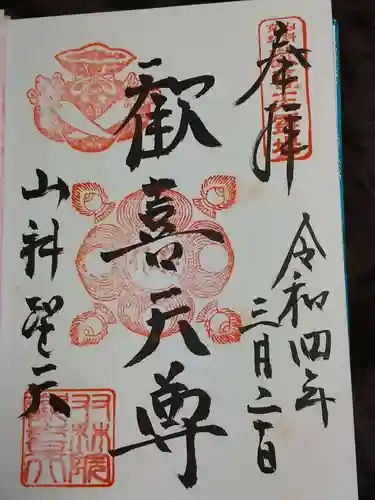 奉拝
令和四年
三月二日
歓喜天尊
山科聖天
双林院